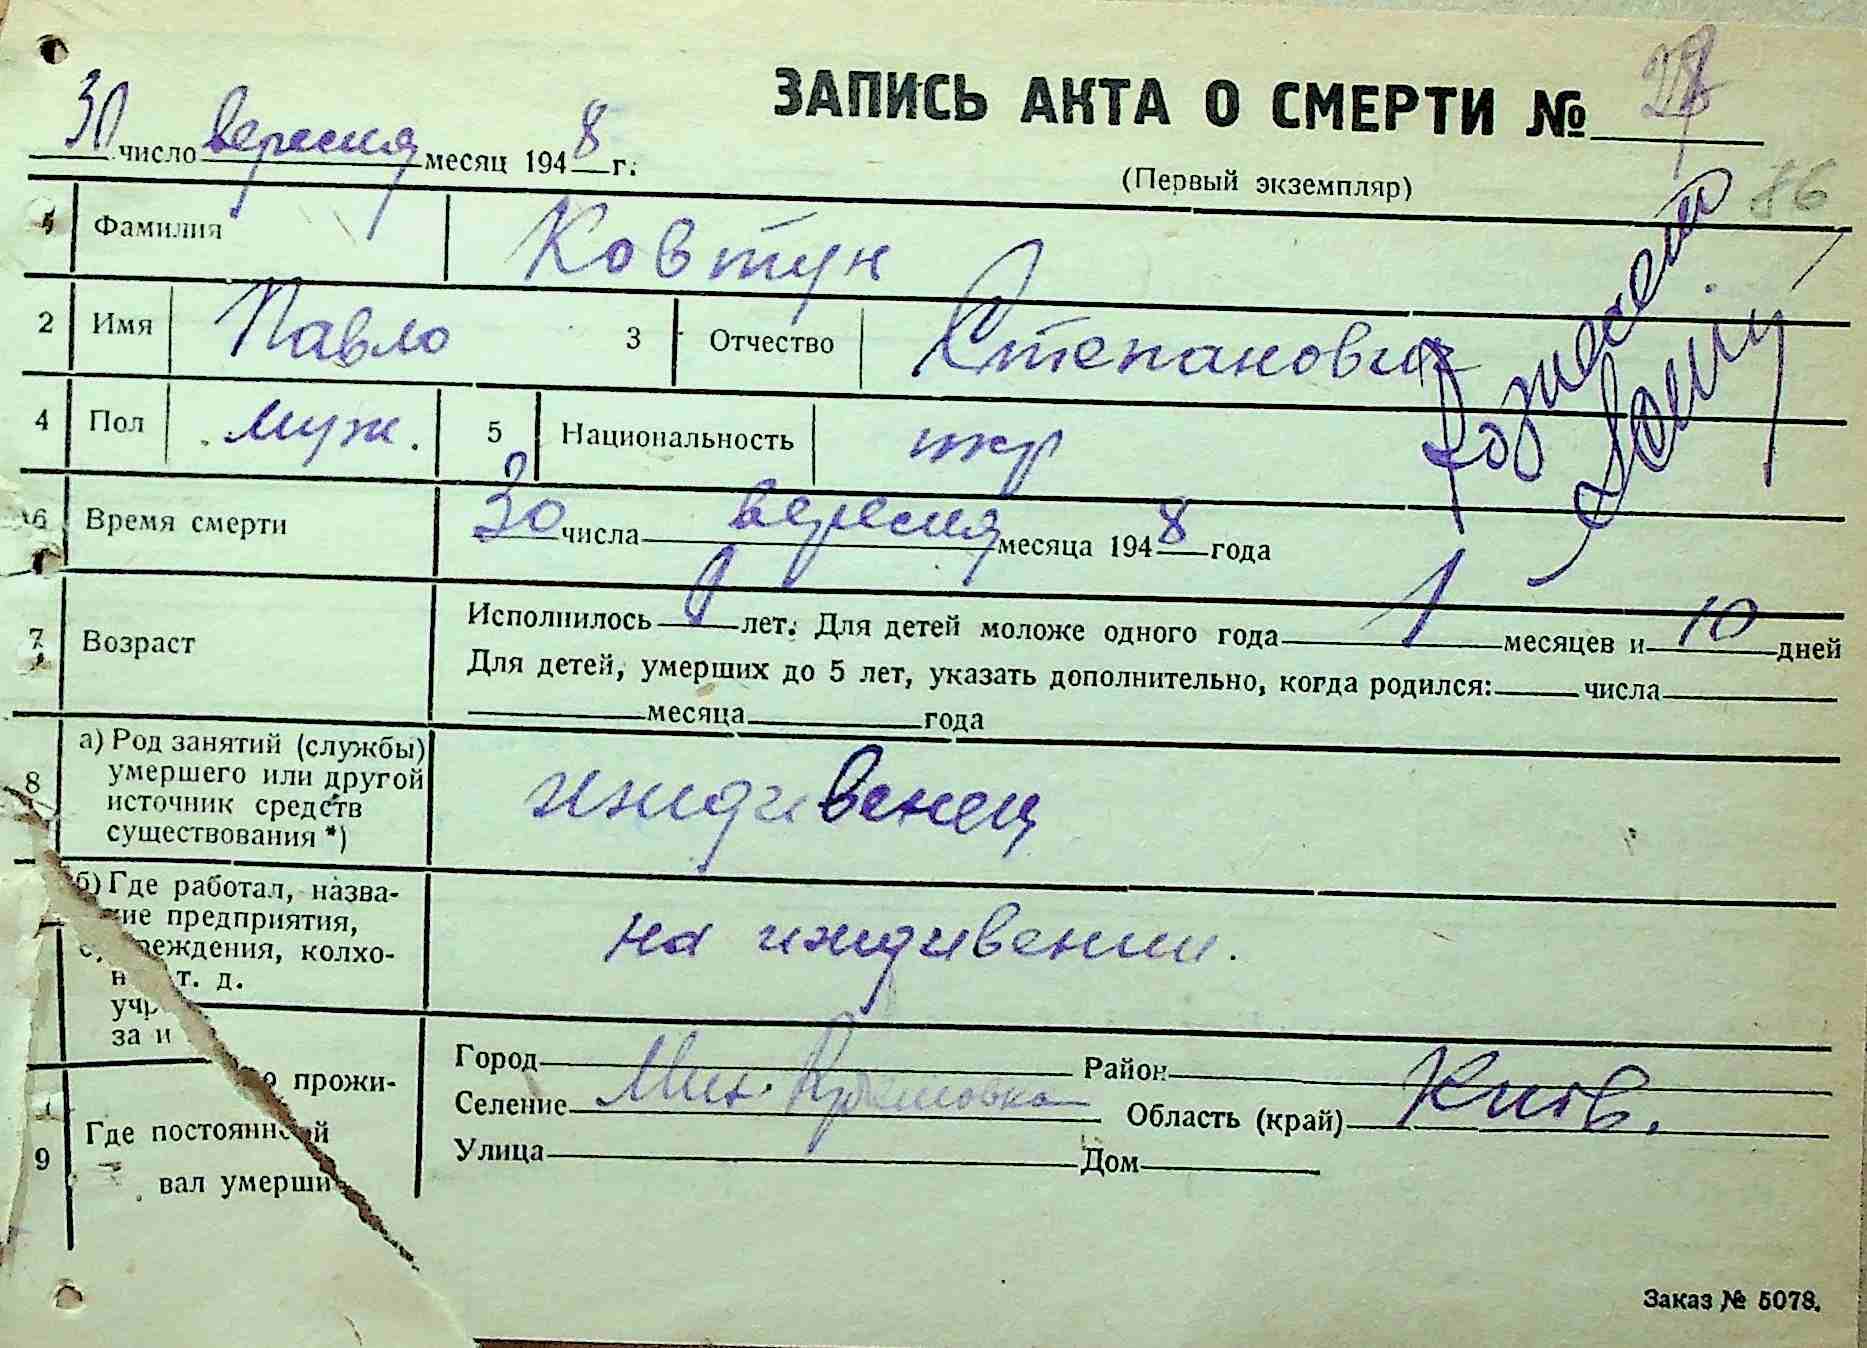 ЗАПИСЬ АКТА О СМЕРТИ №
30 число вересня месяц 1948 г.
(Первый экземпляр)
86
Фамилия Ковтун
2 Имя Павло 3 Отчество Степанович
4 Пол муж. 5 Национальность укр
6 Время смерти 30 числа вересня месяца 1948 года
7 Возраст Исполнилось 0 лет. Для детей моложе одного года 1 месяцев и 10 дней
Для детей, умерших до 5 лет, указать дополнительно, когда родился: числа
месяца года
8 а) Род занятий (службы) умершего или другой источник средств существования *) иждивенец
б) Где работал, назва-
ние предприятия,
реждения, колхо-
н т. д.
учр
за и
на иждивении.
9 прожи-
Где постоянн й
вал умерши
Город Район
Селение Мик. Области (край) Киев.
Улица Дом
Заказ № 5078.